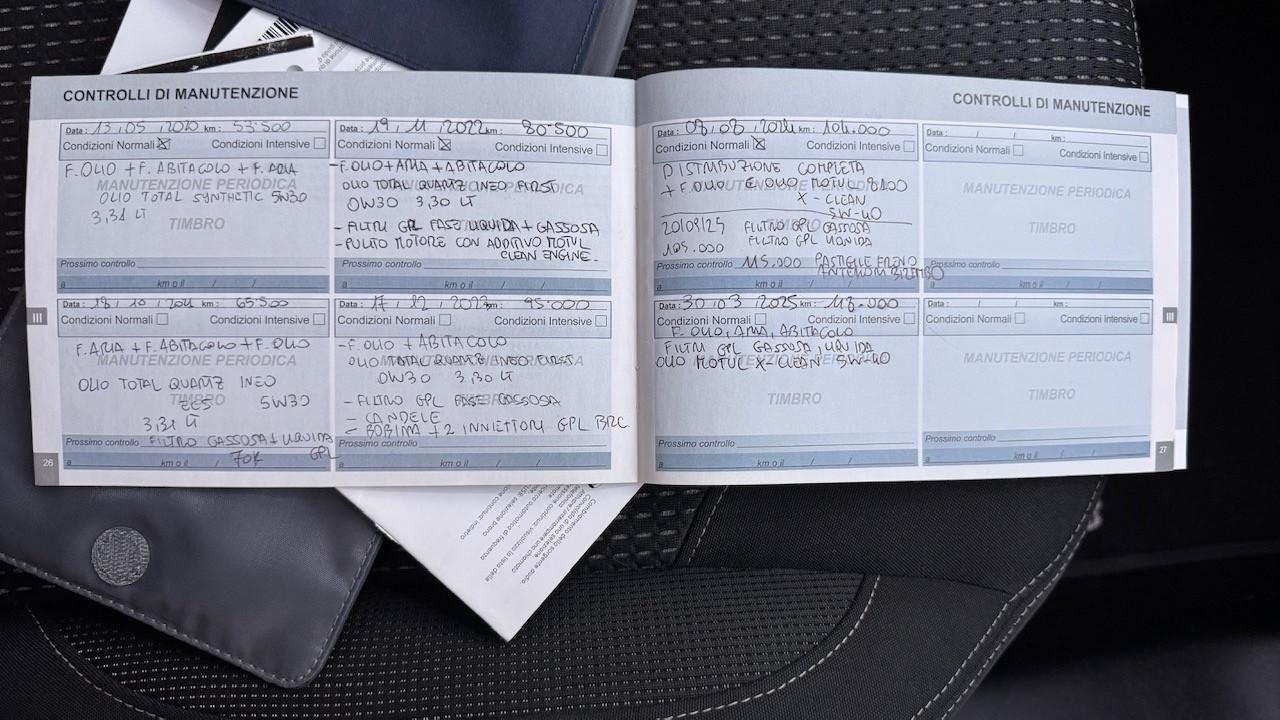 CONTROLLI DI MANUTENZIONE
Data: 13 , 05 , 2020 km: 53.500
Condizioni Normali Condizioni Intensive
F. OLIO + F. ABITACOLO + F. ARIA
MANUTENZIONE PERIODICA
OLIO TOTAL SYNTHETIC 5W30
3,31 LT
TIMBRO
Prossimo controllo
a km o il / /
Data: 19 , 11 , 2022 km: 80.500
Condizioni Normali Condizioni Intensive
- F. OLIO + ARIA + ABITACOLO
OLIO TOTAL QUARTZ INEO FIRST
MANUTENZIONE PERIODICA
0W30 3,30 LT
TIMBRO
- FILTRI GPL FASE LIQUIDA + GASSOSA
- PULITO MOTORE CON ADDITIVO MOTUL
CLEAN ENGINE.
Prossimo controllo
a km o il / /
Data: 18 , 10 , km: 65.500
Condizioni Normali Condizioni Intensive
F. ARIA + F. ABITACOLO + F. OLIO
MANUTENZIONE PERIODICA
OLIO TOTAL QUARTZ INEO
5W30
TIMBRO
3,31 LT
Prossimo controllo FILTRO GASSOSA + LIQUIDA
70K GPL
a km o il / /
Data: 17 , 12 , 2023 km: 95.000
Condizioni Normali Condizioni Intensive
- F. OLIO + ABITACOLO
OLIO TOTAL QUARTZ INEO FIRST
MANUTENZIONE PERIODICA
0W30 3,30 LT
- FILTRO GPL FASE GASSOSA
TIMBRO
- CANDELE
- BOBINA + 2 INIETTORI GPL BRC
Prossimo controllo
a km o il / /
III
26
CONTROLLI DI MANUTENZIONE
Data: 08 , 08 , 2024 km: 104.000
Condizioni Normali Condizioni Intensive
DISTRIBUZIONE COMPLETA
+ F. OLIO E OLIO MOTUL 8100
MANUTENZIONE PERIODICA
X - CLEAN
5W-40
TIMBRO
FILTRO GPL GASSOSA
FILTRO GPL LIQUIDA
Prossimo controllo 115.000 PASTIGLIE FRENO
a km o il / /
Data: / / km:
Condizioni Normali Condizioni Intensive
MANUTENZIONE PERIODICA
TIMBRO
Prossimo controllo
a km o il / /
Data: 30 , 03 , 2025 km:
Condizioni Normali Condizioni Intensive
F. OLIO, ARIA, ABITACOLO
FILTRI GPL GASSOSA, LIQUIDA
MANUTENZIONE PERIODICA
OLIO MOTUL X-CLEAN 5W-40
TIMBRO
Prossimo controllo
a km o il / /
Data: / / km:
Condizioni Normali Condizioni Intensive
MANUTENZIONE PERIODICA
TIMBRO
Prossimo controllo
a km o il / /
III
27